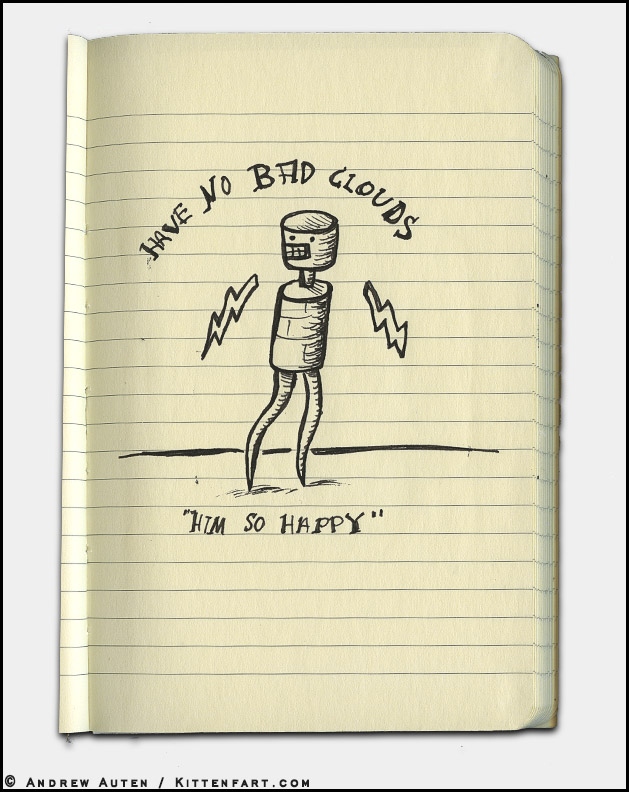 HAVE NO BAD CLOUDS
"HIM SO HAPPY"
© ANDREW AUTEN / KITTENFART.COM